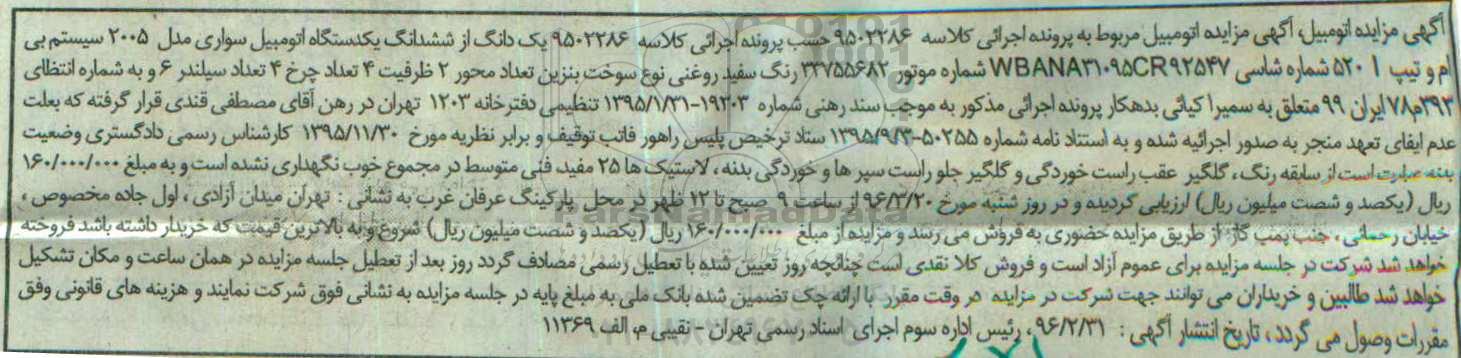 آگهی مزایده اتومبیل، آگهی مزایده اتومبیل مربوط به پرونده اجرائی کلاسه ۹۵۰۲۲۸۶ حسب پرونده اجرائی کلاسه ۹۵۰۲۲۸۶ یک دانگ از ششدانگ یکدستگاه اتومبیل سواری مدل ۲۰۰۵ سیستم بی
ام و تیپ ۵۲۰ I شماره شاسی WBANA۳۱۰۹۵CR۹۲۵۴۷ شماره موتور ۲۲۷۵۵۶۸۲ رنگ سفید روغنی نوع سوخت بنزین تعداد محور ۲ ظرفیت ۴ تعداد چرخ ۴ تعداد سیلندر ۶ و به شماره انتظای
۳۹۳م۷۸ ایران ۹۹ متعلق به سمیرا کیائی بدهکار پرونده اجرائی مذکور به موجب سند رهنی شماره ۱۹۲۰۳-۱۳۹۵/۱/۳۱ تنظیمی دفترخانه ۱۲۰۳ تهران در رهن آقای مصطفی قندی قرار گرفته که بعلت
عدم ایفای تعهد منجر به صدور اجرائیه شده و به استناد نامه شماره ۵۰۲۵۵-۱۳۹۵/۹/۳ ستاد ترخیص پلیس راهور فاتب توقیف و برابر نظریه مورخ ۱۳۹۵/۱۱/۳۰ کارشناس رسمی دادگستری وضعیت
بدنه عبارت است از سابقه رنگ، گلگیر عقب راست خوردگی و گلگیر جلو راست سپر ها و خوردگی بدنه، لاستیک ها ۲۵ مفید فنی متوسط در مجموع خوب نگهداری نشده است و به مبلغ ۱۶۰/۰۰۰/۰۰۰
ریال (یکصد و شصت میلیون ریال) ارزیابی گردیده و در روز شنبه مورخ ۹۶/۳/۲۰ از ساعت ۹ صبح تا ۱۲ ظهر در محل پارکینگ عرفان غرب به نشانی : تهران میدان آزادی، اول جاده مخصوص،
خیابان رحمانی، جنب پمپ گاز از طریق مزایده حضوری به فروش می رسد و مزایده از مبلغ ۱۶۰/۰۰۰/۰۰۰ ریال (یکصد و شصت میلیون ریال) شروع و به بالاترین قیمت که خریدار داشته باشد فروخته
خواهد شد شرکت در جلسه مزایده برای عموم آزاد است و فروش کلا نقدی است چنانچه روز تعیین شده با تعطیل رسمی مصادف گردد روز بعد از تعطیل جلسه مزایده در همان ساعت و مکان تشکیل
خواهد شد طالبین و خریداران می توانند جهت شرکت در مزایده در وقت مقرر با ارائه چک تضمین شده بانک ملی به مبلغ پایه در جلسه مزایده به نشانی فوق شرکت نمایند و هزینه های قانونی وفق
مقررات وصول می گردد، تاریخ انتشار آگهی : ۹۶/۲/۳۱، رئیس اداره سوم اجرای اسناد رسمی تهران - نقیبی م، الف ۱۱۳۶۹
ParsNamadData